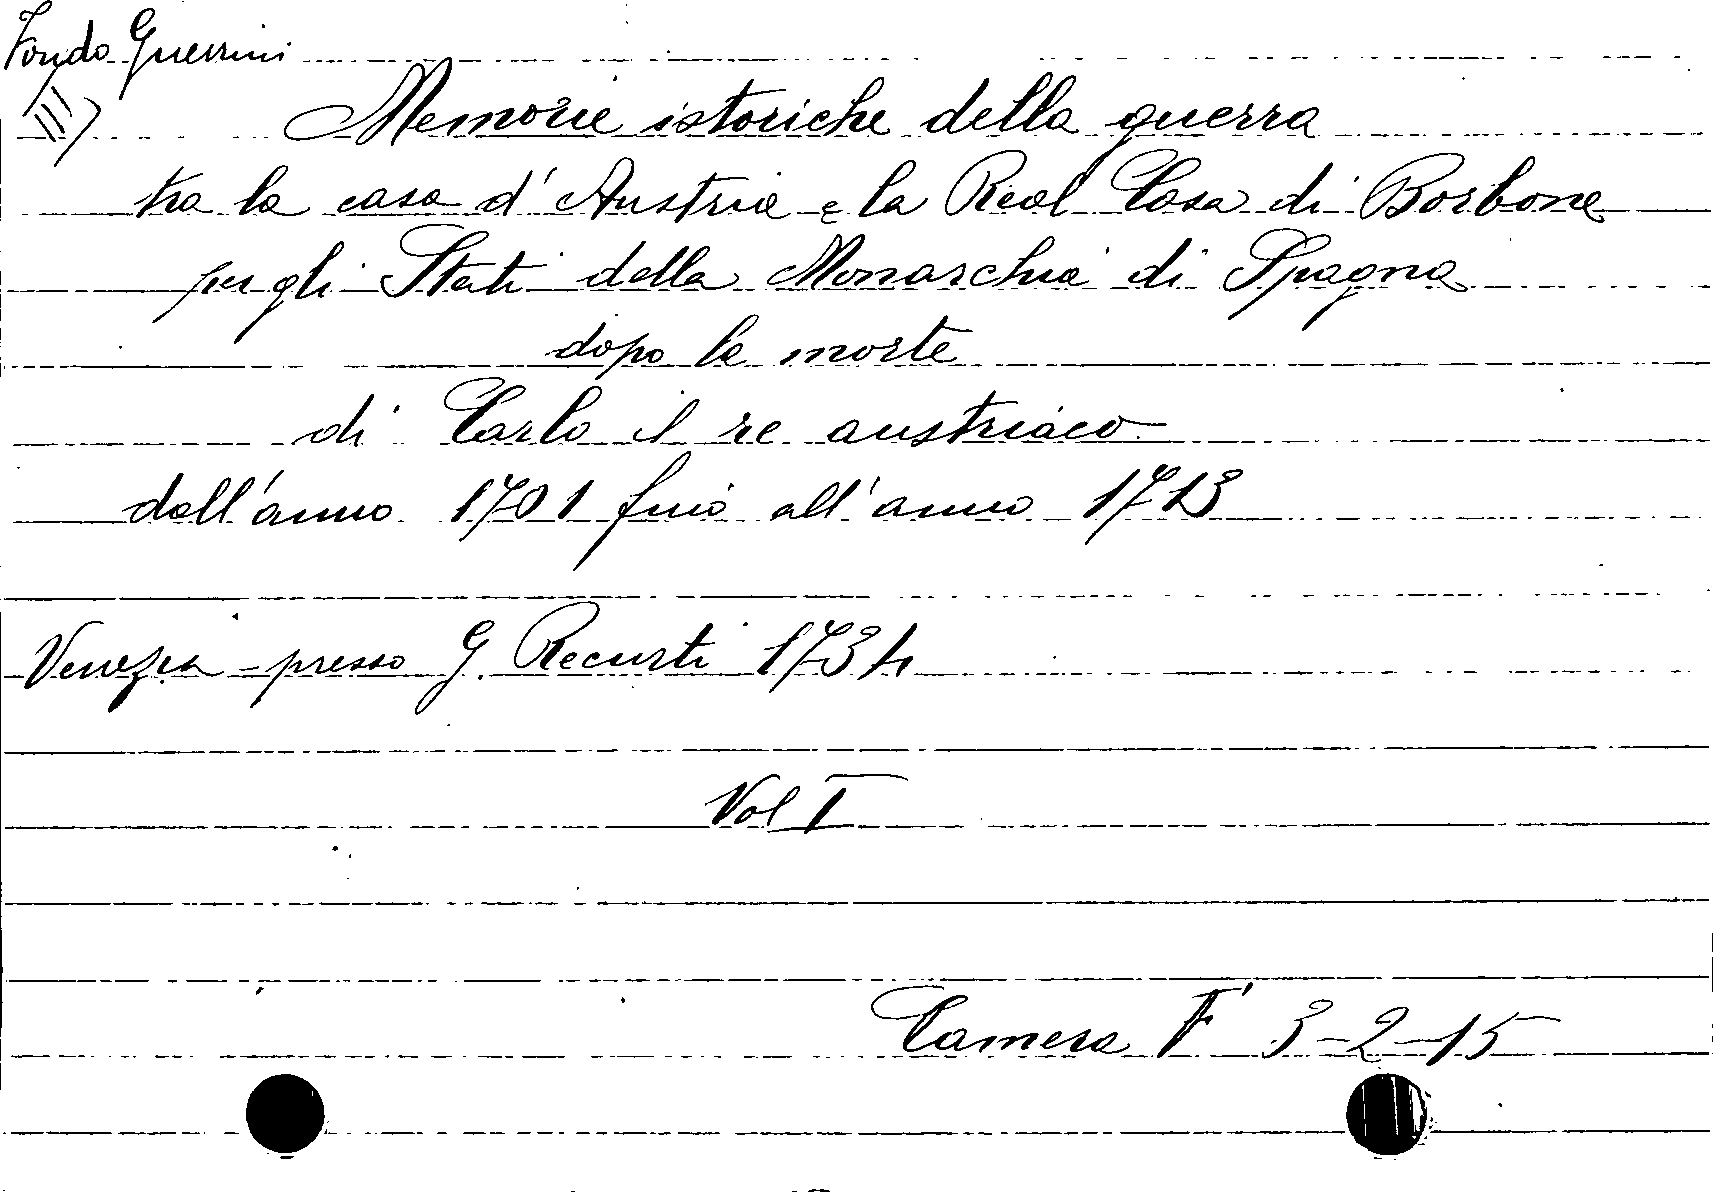 Fondo Guerrini
III)
Memorie istoriche della guerra
tra la casa d'Austria e la Real Casa di Borbone
per gli Stati della Monarchia di Spagna
dopo la morte
di Carlo il re austriaco
dall'anno 1701 fino all'anno 1713
Venezia - presso G. Recurti 1734
Vol I
Camera F 3-2-15